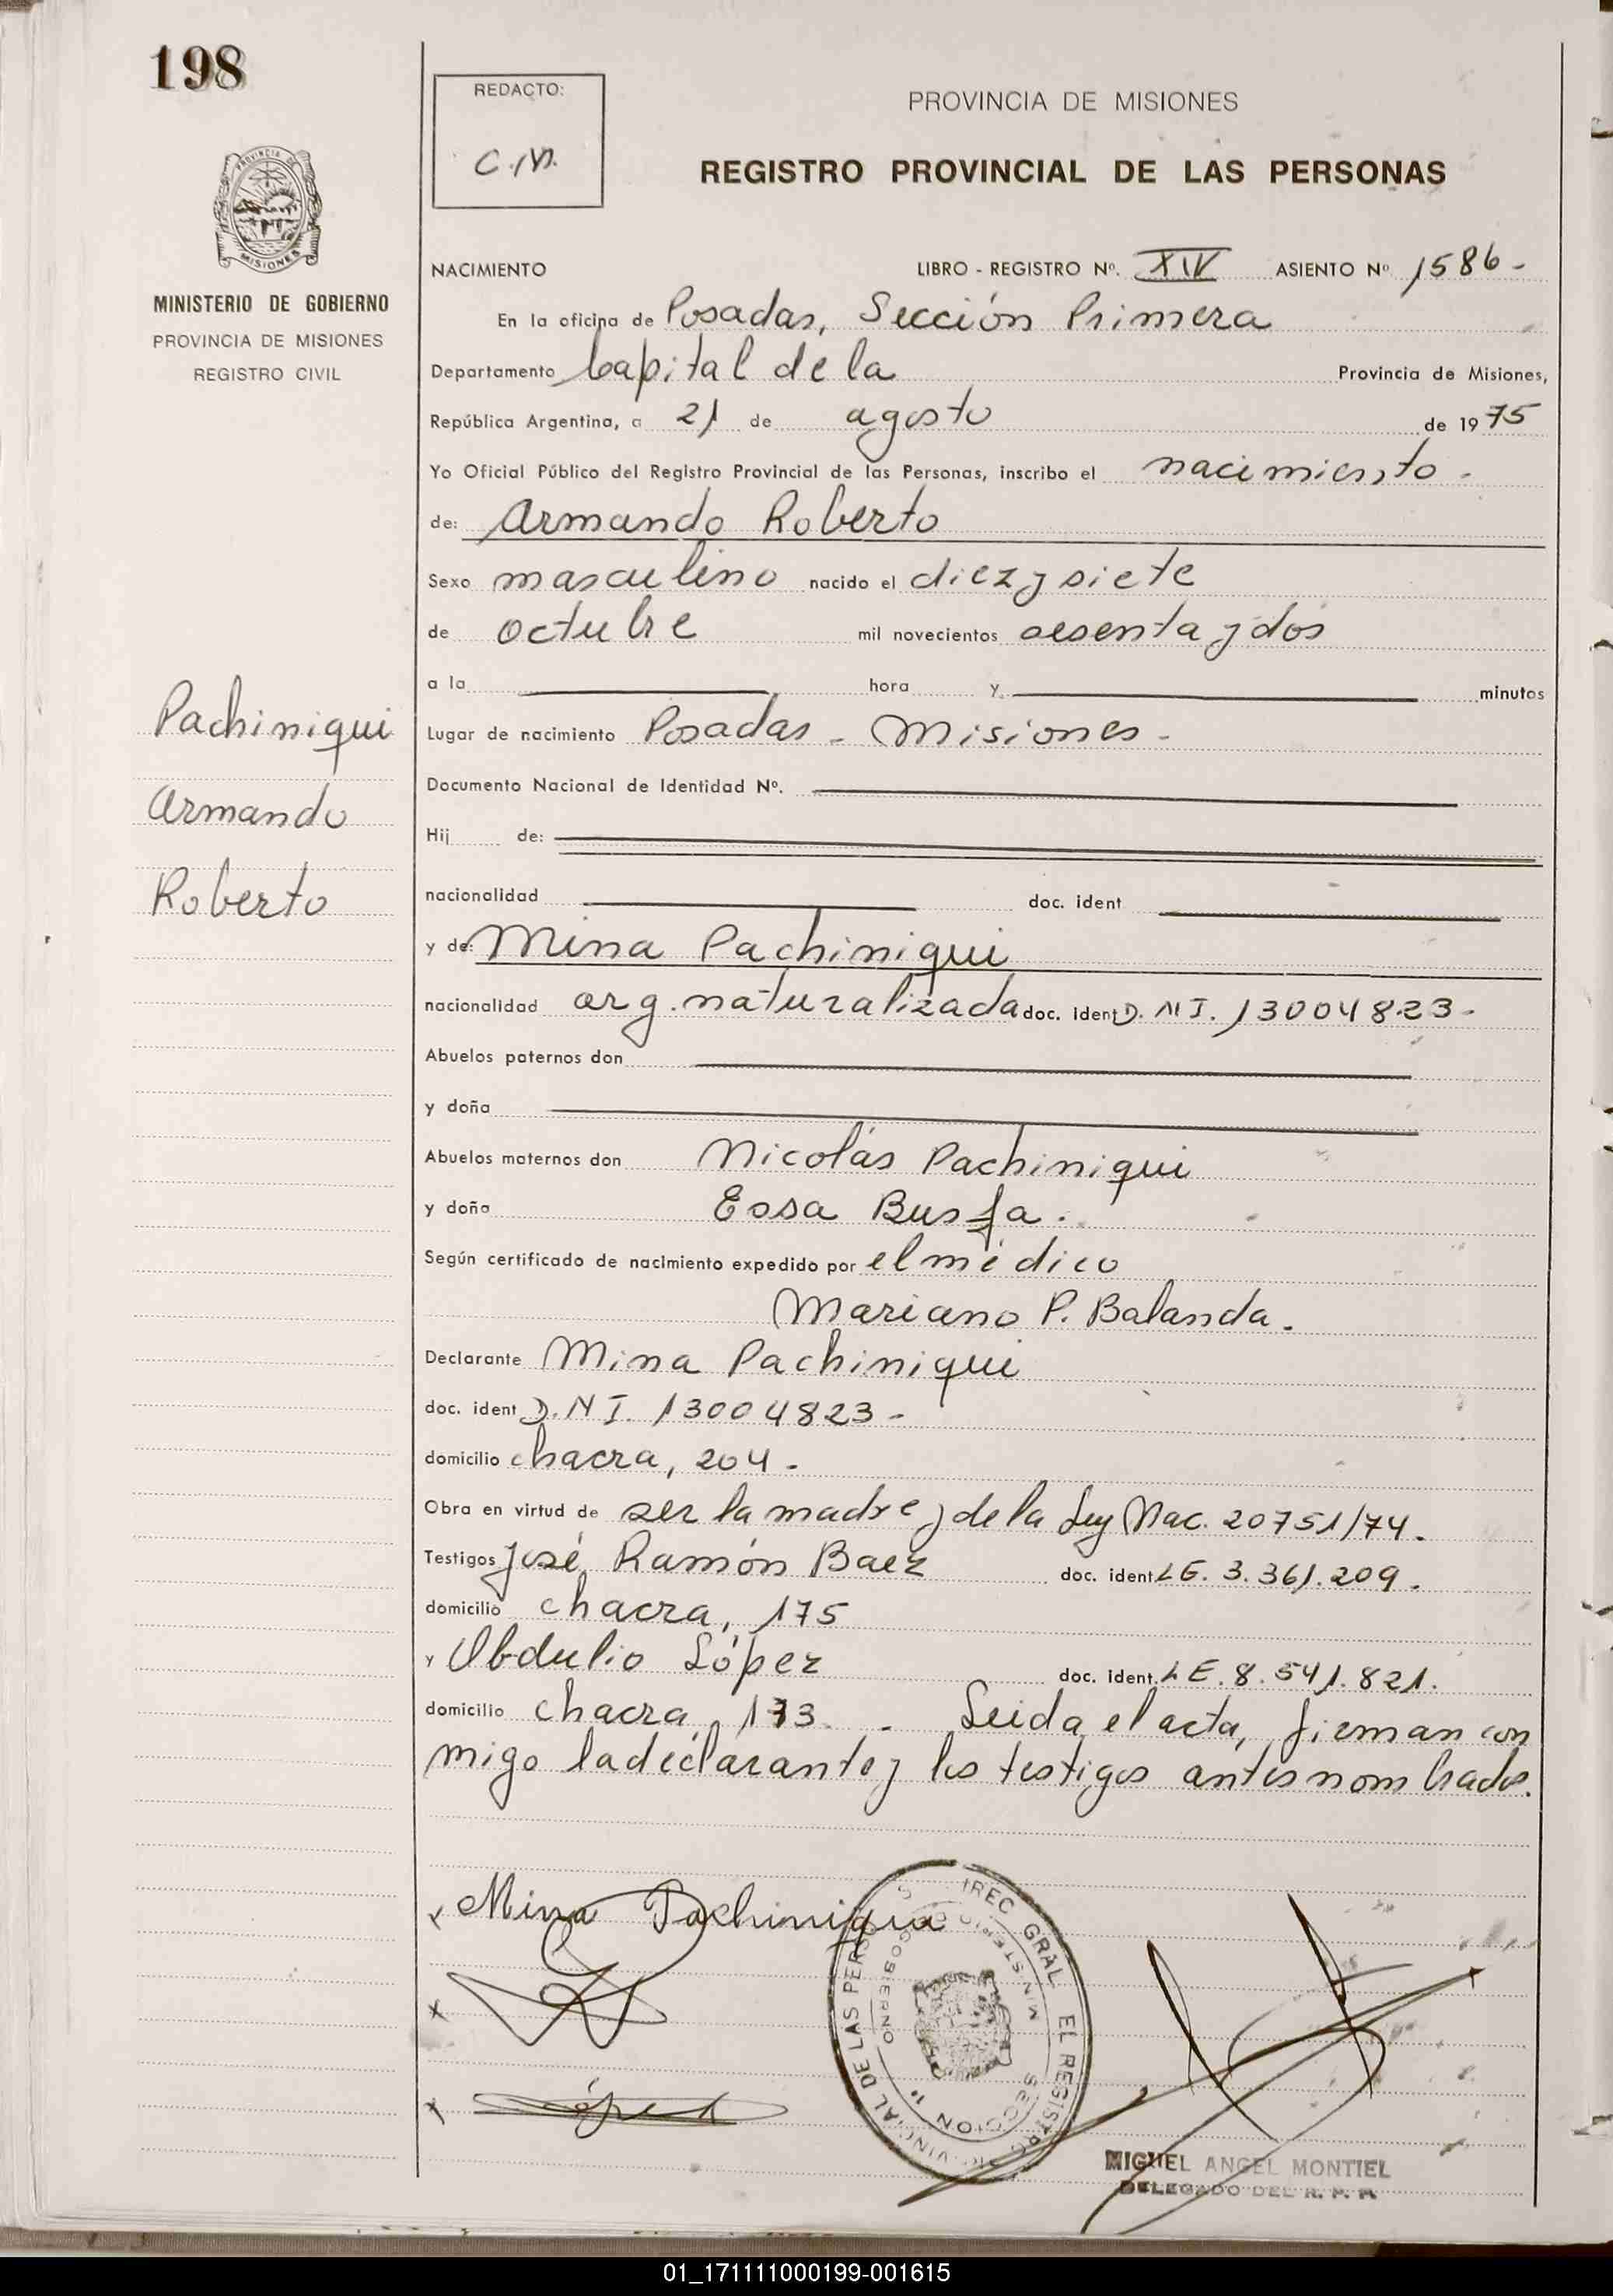 198
REDACTO:
C.M.
PROVINCIA DE MISIONES
REGISTRO PROVINCIAL DE LAS PERSONAS
PROVINCIA DE
MISIONES
MINISTERIO DE GOBIERNO
PROVINCIA DE MISIONES
REGISTRO CIVIL
NACIMIENTO LIBRO - REGISTRO Nº. XIV ASIENTO Nº 1586-
En la oficina de Posadas, Sección Primera
Departamento Capital de la Provincia de Misiones,
República Argentina, a 21 de agosto de 1975
Yo Oficial Público del Registro Provincial de las Personas, inscribo el nacimiento-
de: Armando Roberto
Sexo masculino nacido el diez y siete
de octubre mil novecientos sesenta y dos
a la hora y minutos
Pachiniqui
Armando
Roberto
Lugar de nacimiento Posadas - Misiones-
Documento Nacional de Identidad Nº.
Hij de:
nacionalidad doc. ident
y de: Mina Pachiniqui
nacionalidad arg. naturalizada doc. ident D.NI. 13004823-
Abuelos paternos don
y doña
Abuelos maternos don Nicolás Pachiniqui
y doña
Según certificado de nacimiento expedido por el médico
Mariano P. Balanda.
Declarante Mina Pachiniqui
doc. ident D.NI. 13004823-
domicilio chacra, 204-
Obra en virtud de ser la madre y de la Ley Nac. 20751/74.
Testigos José Ramón Baez doc. ident LE. 3.361.209.
domicilio chacra, 175
y Obdulio López doc. ident. LE. 8.541.821.
domicilio chacra, 173. - Leida el acta, firman con
migo la declarante y los testigos antes nombrados.
Mina Pachiniqui
DIREC GRAL EL REGISTRO PROVINCIAL DE LAS PERSO
MINISTERIO GOBIERNO
SECCION 1ª
López
MIGUEL ANGEL MONTIEL
DELEGADO DEL R. P. P.
01_171111000199-001615